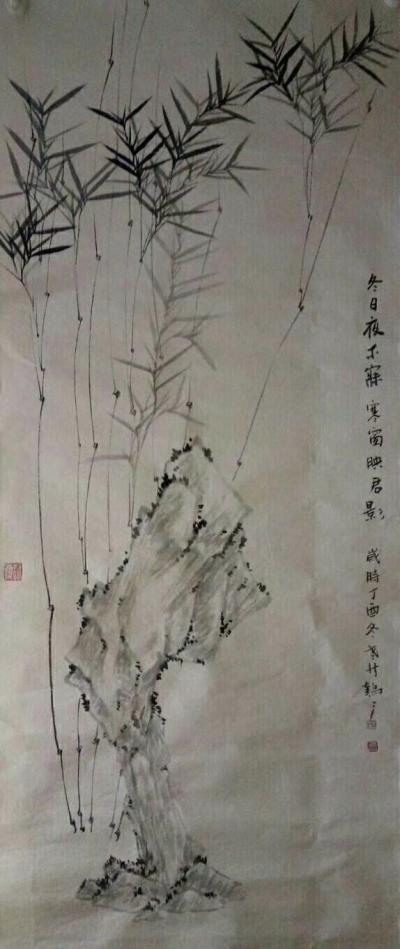 冬日夜不寐 寒窗映君影 歲時丁酉冬